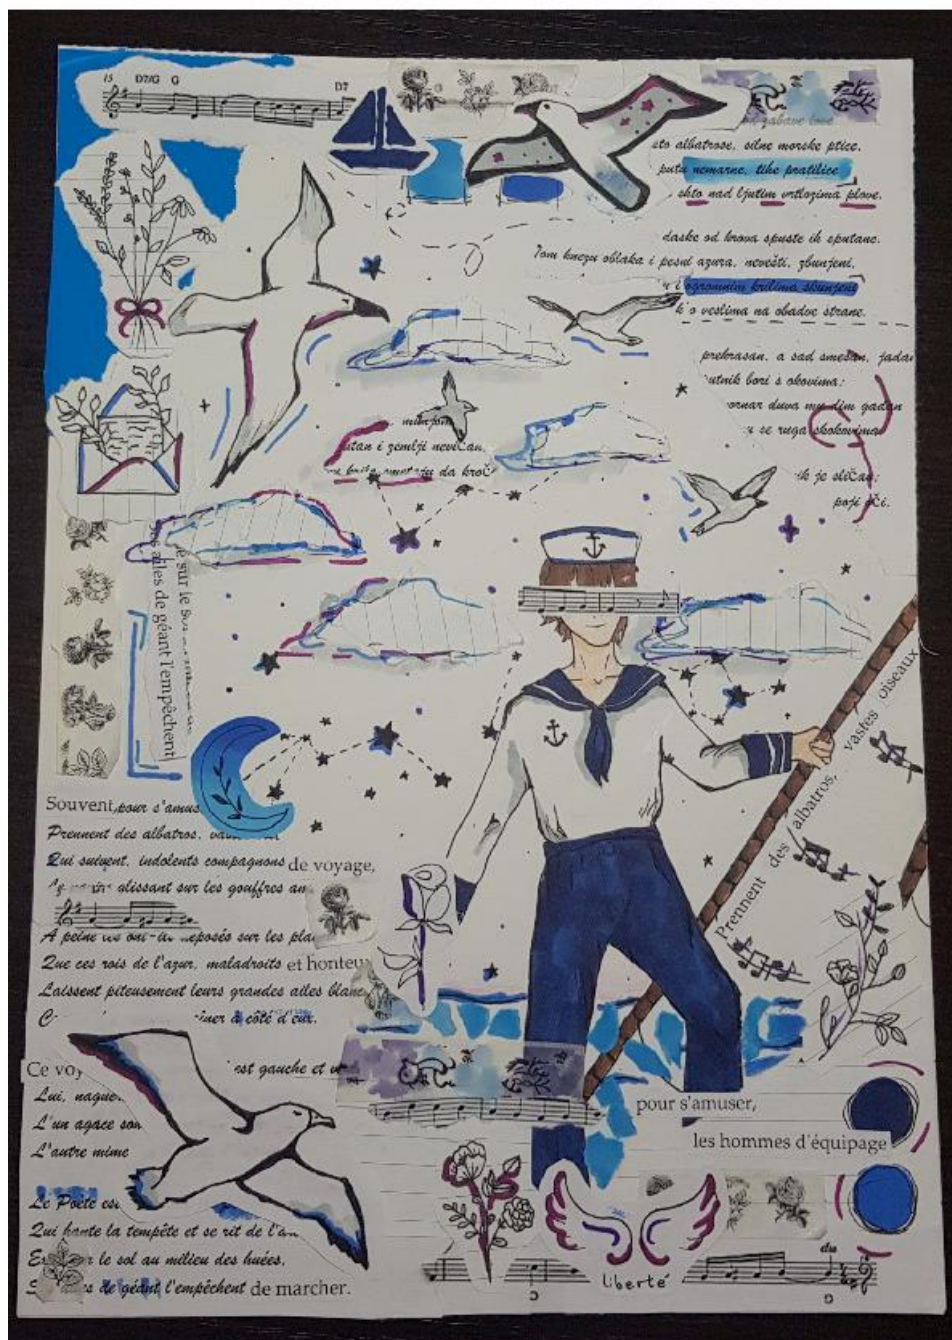 15 D7/G G D7
zabave love
sto albatrose, silne morske ptice,
putu nemarne, tihe pratilice
shto nad ljutim vrtlozima plove.
daske od krova spuste ih sputane.
Tom knezu oblaka i pesni azura, nevešti, zbunjeni,
i ogromnim krilima skunjeni
k'o veslima na obadve strane.
prekrasan, a sad smešan, jadan
utnik bori s okovima:
ornar duva mu dim gadan
se ruga skokovima
stan i zemlji nevičan,
da kroč
ik je sličan:
poji oči.
sur le
es ailes de géant l'empêchent
vastes oiseaux
albatros,
Prennent des
Souvent, pour s'amus
Prennent des albatros,
Qui suivent, indolents compagnons de voyage,
glissant sur les gouffres am
A peine les ont-ils déposés sur les pla
Que ces rois de l'azur, maladroits et honteux
Laissent piteusement leurs grandes ailes blanc
îner à côté d'eux.
Ce voy est gauche et
Lui, nague
L'un agace son
L'autre mime
Le Poète es
Qui hante la tempête et se rit de l'a
le sol au milieu des huées,
de géant l'empêchent de marcher.
pour s'amuser,
les hommes d'équipage
liberté